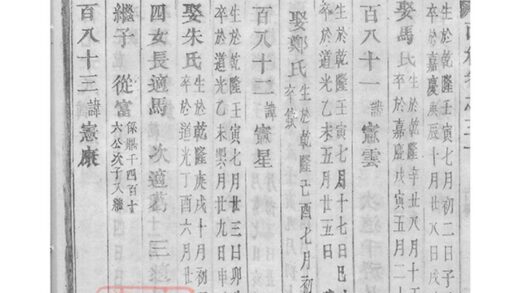 生於乾隆壬寅七月初二日子
卒於嘉慶庚辰十月廿八日戌
娶馬氏
生於乾隆辛丑八月十五
卒於嘉慶戊寅五月二十
百八十一 諱憲雲
生於乾隆壬寅七月十七日巳
卒於道光乙未五月廿五日
娶鄭氏
生於乾隆己酉七月初
卒缺
百八十二 諱憲星
生於乾隆壬寅七月廿三日卯
卒於道光乙未八月廿九日申
娶朱氏
生於乾隆庚戌十月初三
卒於道光丁酉六月廿
四女長適馬 次適葛 三適
繼子 從富
係縣千四百十
六公次子又繼
百八十三 諱憲康